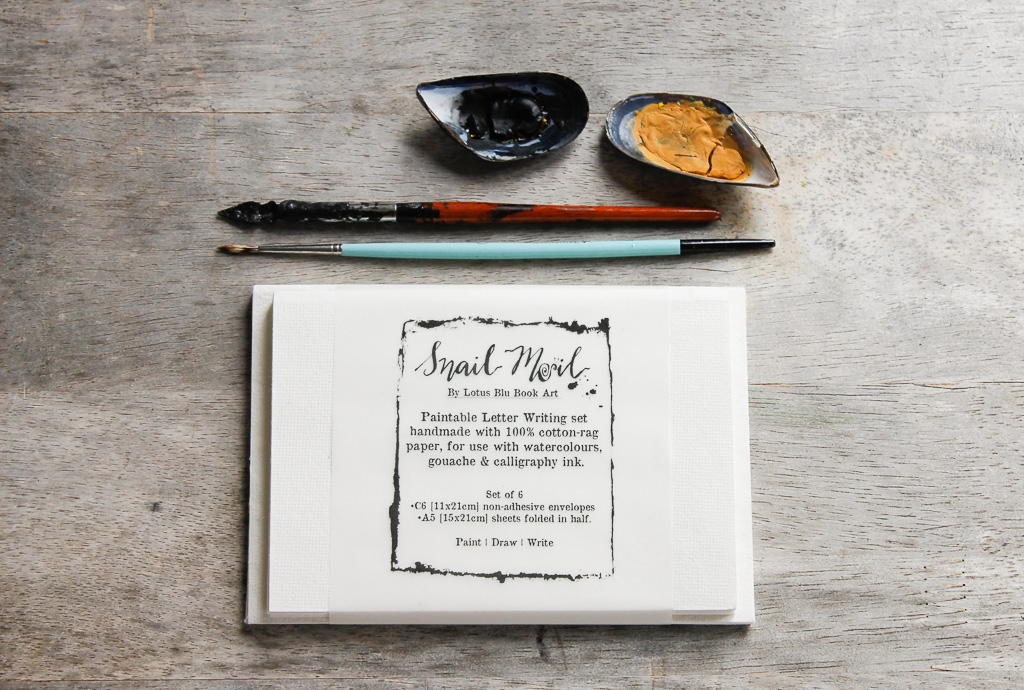 Snail Mail
By Lotus Blu Book Art
Paintable Letter Writing set
handmade with 100% cotton-rag
paper, for use with watercolours,
gouache & calligraphy ink.
Set of 6
•C6 [11x21cm] non-adhesive envelopes
•A5 [15x21cm] sheets folded in half.
Paint | Draw | Write